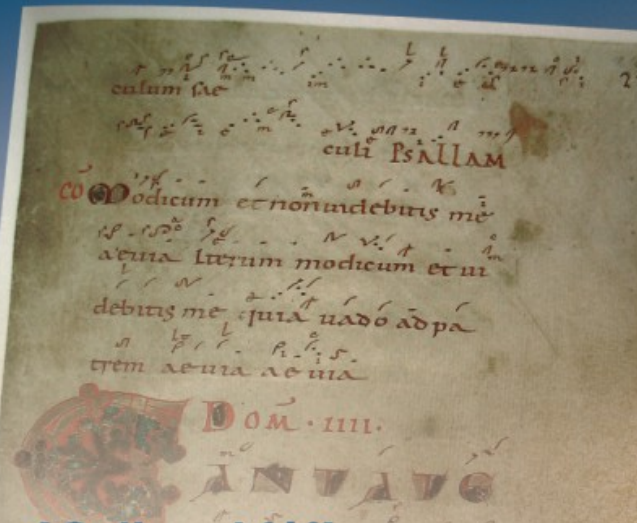 culum sae
culi PSALLAM
cō Modicum et non uidebitis mē
aeuia Iterum modicum et ui
debitis mē quia uado ad pa
trem aeuia aeuia
DOM̄ · IIII ·
CANTATE